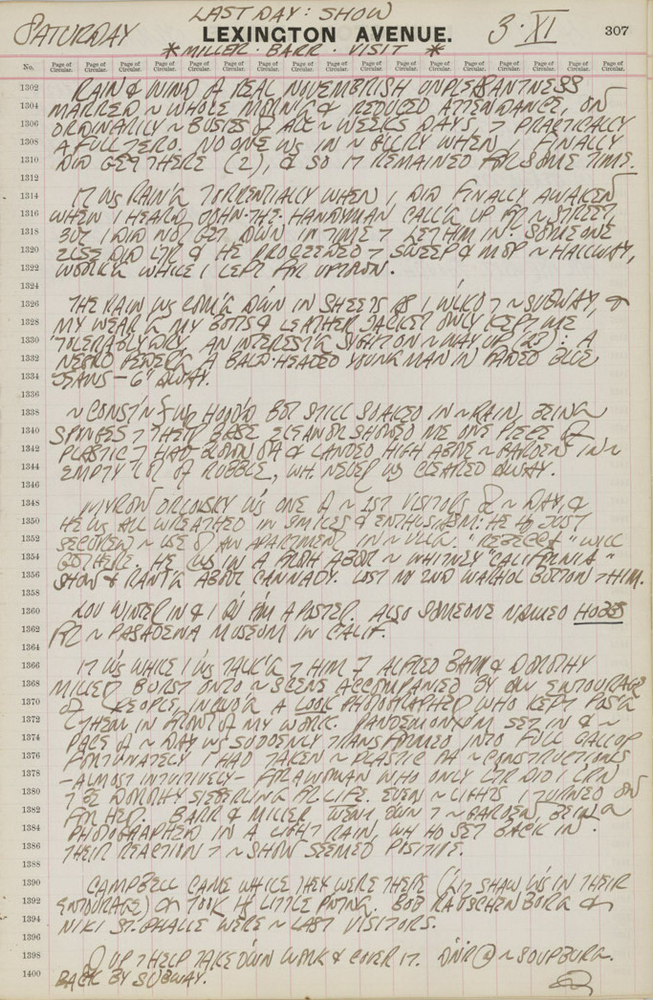 LAST DAY: SHOW
SATURDAY LEXINGTON AVENUE. 3·XI 307
* MILLER·BARR·VISIT *
No. Page of Circular. Page of Circular. Page of Circular. Page of Circular. Page of Circular. Page of Circular. Page of Circular. Page of Circular. Page of Circular. Page of Circular. Page of Circular. Page of Circular. Page of Circular. Page of Circular.
1302 RAIN & WIND A REAL NOVEMBRISH UNPLEASANTNESS
1304 MARRED ~ WHOLE & REDUCED ATTENDANCE, ON
1306 ORDINARILY ~ OF ALL ~ WEEKS DAYS, PRACTICALLY
1308 A FULL ZERO. NO ONE WS IN ~ WHEN I FINALLY
1310 DID GET THERE (2), & SO IT REMAINED FOR SOME TIME.
1312
1314 IT WS RAIN'G TORRENTIALLY WHEN I DID FINALLY AWAKEN
1316 WHEN I HEARD JOHN-THE-HANDYMAN CALL'G UP ~ STREET
1318 BUT I DID NOT GET DWN IN TIME LET HIM IN. SOMEONE
1320 ELSE DID LTR & HE PROCEEDED SWEEP & MOP ~ HALLWAY,
1322 WORK'G WHILE I LEFT FOR UPTOWN.
1324
1326 THE RAIN WS COM'G DWN IN SHEETS AS I ~ SUBWAY, &
1328 MY WEAR'G MY BOOTS & LEATHER JACKET ONLY KEPT ME
1330 TOLERABLY DRY. AN INTEREST'G SIGHT ON ~ WAY UP A
1332 NEGRO A BALD-HEADED YOUNG MAN IN FADED BLUE
1334 JEANS – 6" AWAY.
1336
1338 ~ HOOD'D BUT STILL SOAKED IN ~ RAIN, BEING
1340 SPONGES THEIR BASE. ELEANOR SHOWED ME ONE PIECE OF
1342 PLASTIC HAD BLOWN OFF & LANDED HIGH ABOVE ~ GARDEN IN ~
1344 EMPTY LOT OF RUBBLE, WH. NEVER WS CLEARED AWAY.
1346
1348 MYRON ORLOWSKY WS ONE OF ~ 1ST VISITORS OF ~ DAY, &
1350 HE WS ALL WREATHED IN SMILES & ENTHUSIASM: HE HD JUST
1352 SECURED ~ USE OF AN APARTMENT IN ~ "REBECCA" WILL
1354 GO THERE. HE WS IN A ABOUT ~ WHITNEY "CALIFORNIA"
1356 SHOW & RANT'G ABOUT CANNADY. LOST MY 2ND WARHOL BUTTON HIM.
1358
1360 LOU WINTER IN & A POSTER. ALSO SOMEONE NAMED HOBBS
1362 ~ PASADENA MUSEUM IN CALIF.
1364
1366 IT WS WHILE I WS TALK'G HIM ALFRED BARR & DOROTHY
1368 MILLER BURST ONTO ~ SCENE ACCOMPANIED BY AN ENTOURAGE
1370 OF PEOPLE, A LOOK PHOTOGRAPHER WHO KEPT POS'G
1372 THEM IN FRONT OF MY WORK. PANDEMONIUM SET IN & ~
1374 PACE OF ~ DAY WS SUDDENLY TRANSFORMED INTO FULL GALLOP
1376 FORTUNATELY I HAD TAKEN ~ PLASTIC OFF ~ CONSTRUCTIONS
1378 –ALMOST INTUITIVELY– FOR A WOMAN WHO ONLY LTR DID I LRN
1380 BE DOROTHY LIFE. EVEN ~ LIGHTS I TURNED ON
1382 FOR HER. BARR & MILLER WENT DWN ~ GARDEN, BEING
1384 PHOTOGRAPHED IN A LIGHT RAIN, WH HD SET BACK IN.
1386 THEIR REACTION ~ SHOW SEEMED POSITIVE.
1388
1390 CAMPBELL CAME WHILE THEY WERE THERE ( SHAW WS IN THEIR
1392 ENTOURAGE) & TOOK LITTLE BOB RAUSCHENBERG &
1394 NIKI ST. PHALLE WERE ~ LAST VISITORS.
1396
1398 UP HELP TAKE DOWN WORK & COVER IT. DNR @ ~ SOUPBURG.
1400 BACK BY SUBWAY.